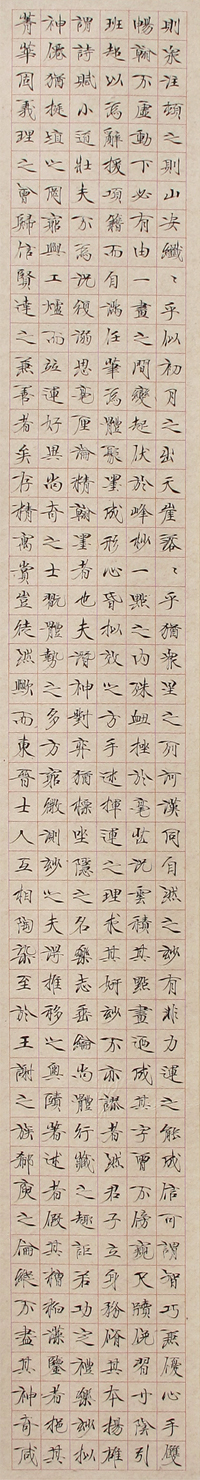 則泉注頓之則山安纖〻乎似初月之出天崖落〻乎猶衆星之列河漢同自然之妙有非力運之能成信可謂智巧兼優心手雙
暢翰不虛動下必有由一畫之間變起伏於峰杪一點之内殊衄挫於毫芒況雲積其點畫迺成其字曾不傍窺尺牘俛習寸陰引
班超以爲辭援項籍而自滿任筆爲體聚墨成形心昏擬效之方手迷揮運之理求其妍妙不亦謬哉然君子立身務脩其本揚雄
謂詩賦小道壯夫不爲況復溺思毫釐淪精翰墨者也夫潛神對弈猶標坐隱之名樂志垂綸尚體行藏之趣詎若功定禮樂妙擬
神僊猶埏埴之罔窮與工爐而並運好異尚奇之士翫體勢之多方窮微測妙之夫得推移之奧賾著述者假其糟粕藻鑒者挹其
菁華固義理之會歸信賢達之兼善者矣存精寓賞豈徒然歟而東晉士人互相陶染至於王謝之族郗庾之倫縱不盡其神奇咸